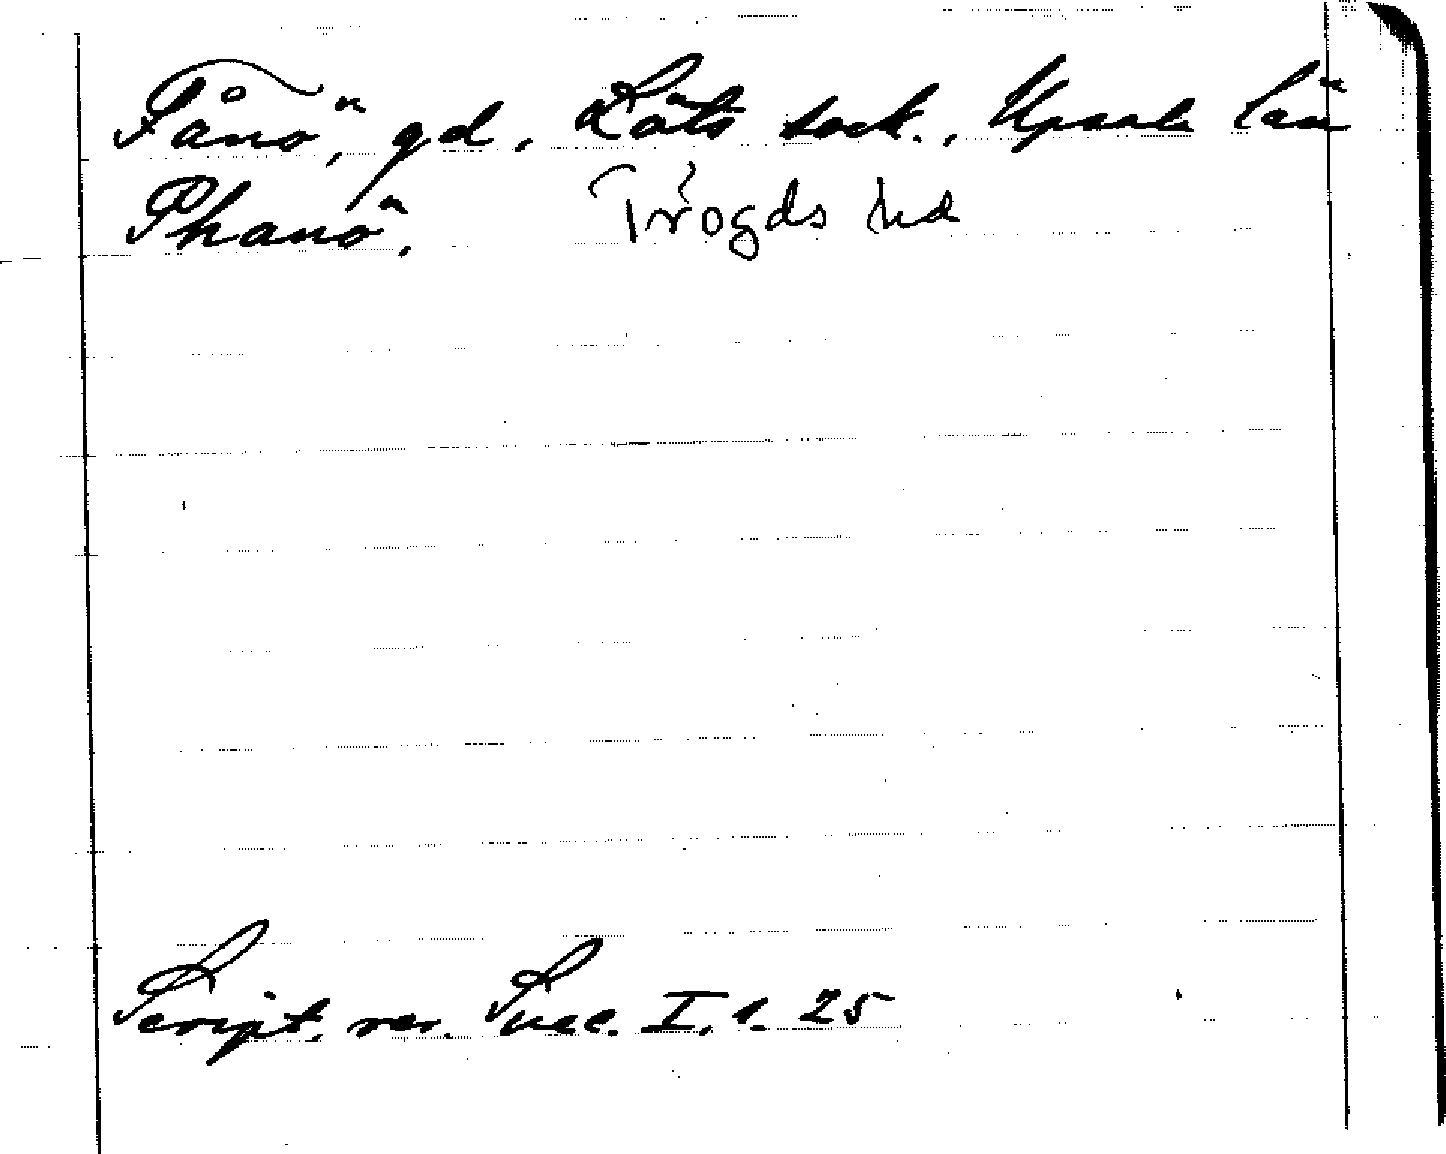 Fånö, gd, Löts sock., Upsala län
Phanö, Trögds hd
Script. rer. Suec. I. 1. 25